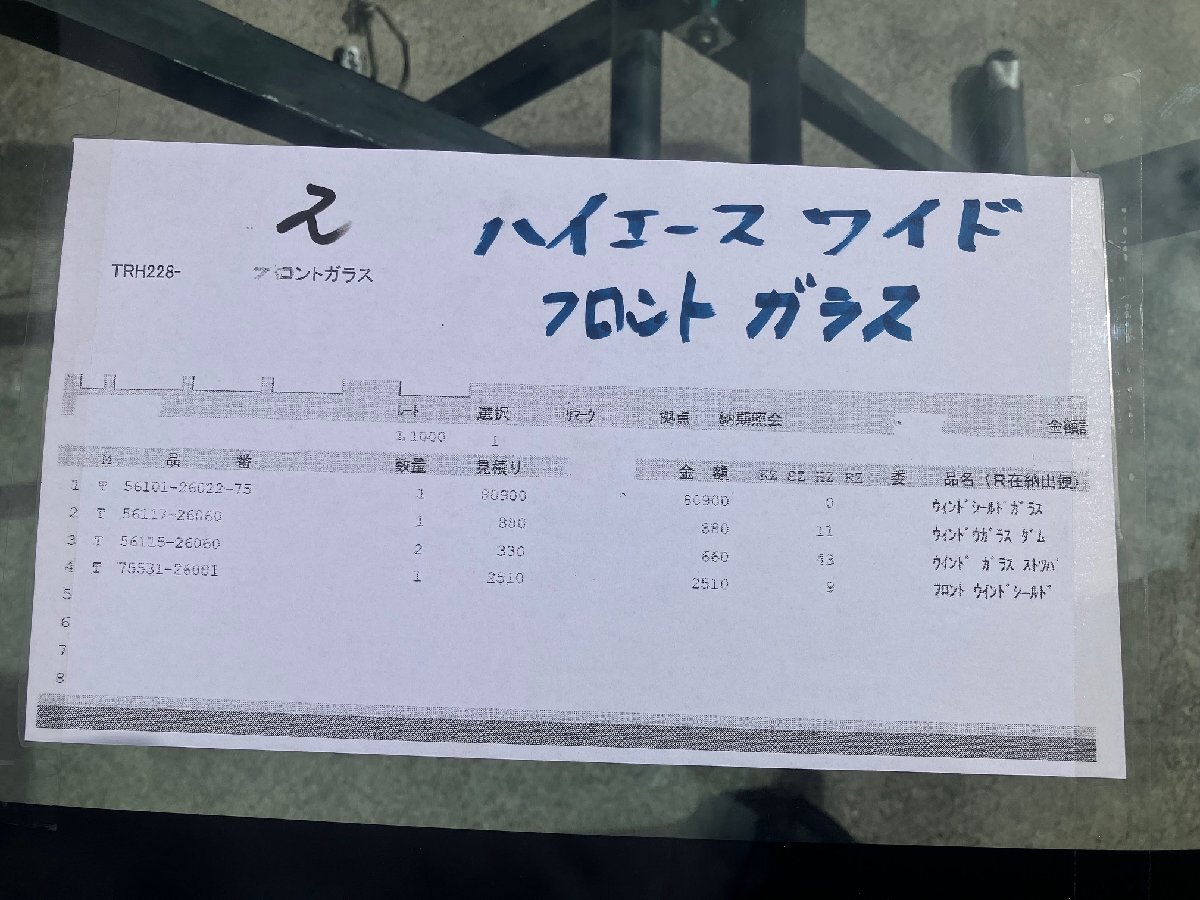 え ハイエース ワイド
TRH228- フロントガラス フロント ガラス
レート 選択 リマーク 拠点 納期照会
L1000 1
M 品 番 数量 見積り 金 額 KZ SZ HZ RZ 委 品名（R在納出便）
1 T 56101-26022-75 1 80900 80900 0 ｳｨﾝﾄﾞｼｰﾙﾄﾞｶﾞﾗｽ
2 T 56117-26060 1 880 880 11 ｳｨﾝﾄﾞｳｶﾞﾗｽ ﾀﾞﾑ
3 T 56115-26060 2 330 660 43 ｳｲﾝﾄﾞ ｶﾞﾗｽ ｽﾄﾂﾊﾟ
4 T 75531-26081 1 2510 2510 9 ﾌﾛﾝﾄ ｳｲﾝﾄﾞｼｰﾙﾄﾞ
5
6
7
8